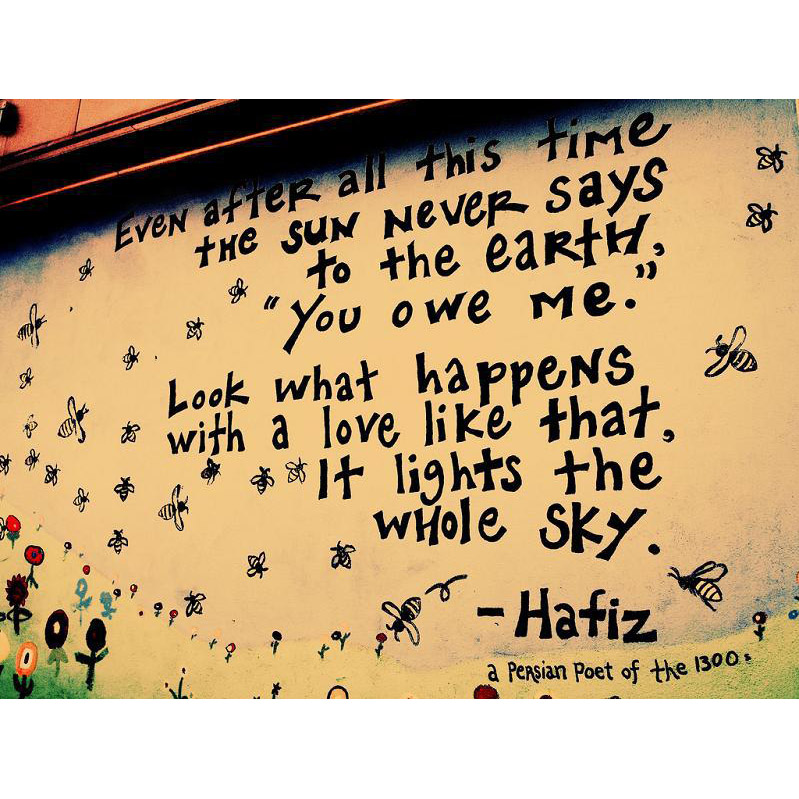 Even after all this time
the sun never says
to the earth,
"You owe me."
Look what happens
with a love like that,
It lights the
whole sky.
-Hafiz
a Persian Poet of the 1300s